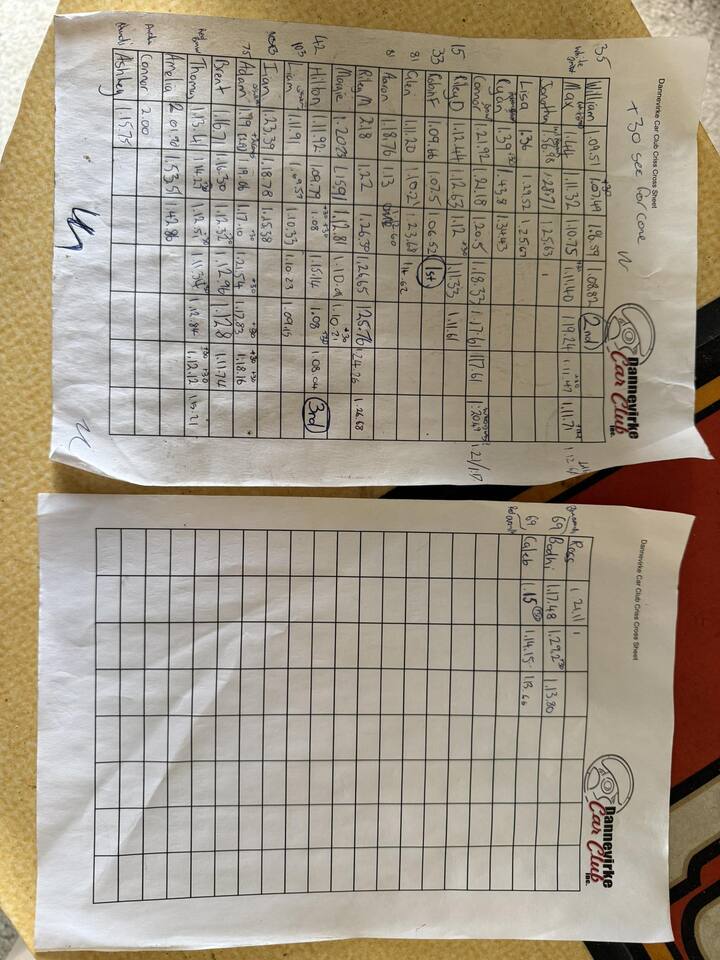 Dannevirke Car Club Criss Cross Sheet
+30 sec for cone
Dannevirke
Car Club
Inc.
35 William 1.09.51 1.07.49 +30 1.08.82 2nd
Max 1.44 1.11.32 1.10.75 1.11.40 1.19.24 1.11.47 1.11.71
1.28.71 1.25.63
Lisa 1.36 1.29.52 1.25.67
Ryan 1.39 1.43.8 1.34.43
Connor 1.21.92 1.21.8 1.20.5 1.18.33 1.17.61 1.17.61
15 Riley D 1.12.44 1.12.63 1.12 +30 1.11.33 1.11.61
33 1.09.46 1.07.5 1.06.52 1st
81 Glen 1.11.20 1.10.21 1.23.68
81 Aaron 1.18.76 1.13
Riley M 2.18 1.22 1.26.30 1.26.65 1.25.76 1.24.76 1.26.68
Margie 1.20.23 1.15.91 1.12.81 1.10.91 1.10.21 +30
42 Hilton 1.11.92 1.09.79 1.08 +30 +30 1.15.14 1.08 +30 1.08.04 3rd
Liam 1.11.91 1.09.57 1.10.33 1.10.23 1.09.15
Ian 1.23.39 1.18.78 1.15.58
75 Adam 1.19 1.19.06 1.17.10 +30 1.21.54 +30 1.17.83 +30 1.18.16 +30 +30
Brent 1.16.71 1.16.30 1.12.52 +30 1.12.96 1.12.8 1.11.74
Thomas 1.33.41 1.14.29 1.12.51 +30 1.11.34 1.12.84 1.12.12 +30 +30 1.13.21
Amelia 2.01.90 1.53.5 1.42.86
Connor 2.00
Ashley 1.15.75
Dannevirke Car Club Criss Cross Sheet
Dannevirke
Car Club
Inc.
Ross 1.24.11
69 Bodhi 1.17.48 1.29.2 +30 1.13.80
69 Caleb 1.15 +30 1.14.15 1.13.66